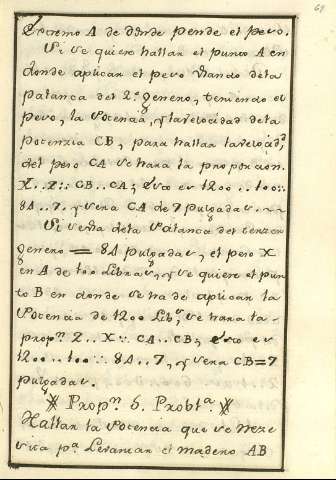 69
Extremo A de donde pende el peso.
Si se quiere hallar el punto A en
donde aplicar el peso usando dela
palanca del 2.º genero, teniendo el
peso, la Potencia, y la velocidad dela
Potencia CB, para hallar la velocidᵈ
del peso CA se hara la proporcion.
X..Z:: CB..CA; esto es 1200..100::
84..7. y sera CA de 7 pulgadas.~~
Si se usa dela Palanca del tercer
genero = 84 pulgadas, el peso X
en A de 100 Libras, y se quiere el pun
to B en donde se ha de aplicar la
Potencia de 1200 Libˢ, se hara la
propⁿ. Z..X:: CA..CB; esto es
1200..100:: 84..7, y sera CB=7
pulgadas.
Propⁿ. 5. Problᵃ.
Hallar la Potencia que se nece
sita pᵃ Levantar el madero AB